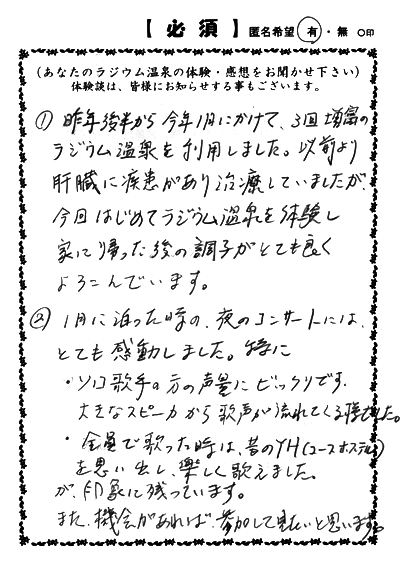 【 必 須 】 匿名希望 有 ・ 無 ○印
(あなたのラジウム温泉の体験・感想をお聞かせ下さい)
体験談は、皆様にお知らせする事もございます。
① 昨年後半から今年1月にかけて、3回増富の
ラジウム温泉を利用しました。以前より
肝臓に疾患があり治療していましたが、
今回はじめてラジウム温泉を体験し
家に帰った後の調子がとても良く
よろこんでいます。
② 1月に泊った時の、夜のコンサートには、
とても感動しました。特に
・ソロ歌手の方の声量にビックリです。
大きなスピーカから歌声が流れてくる様でした。
・全員で歌った時は、昔のYH(ユースホステル)
を思い出し、楽しく歌えました。
が、印象に残っています。
また、機会があれば、参加して見たいと思います。